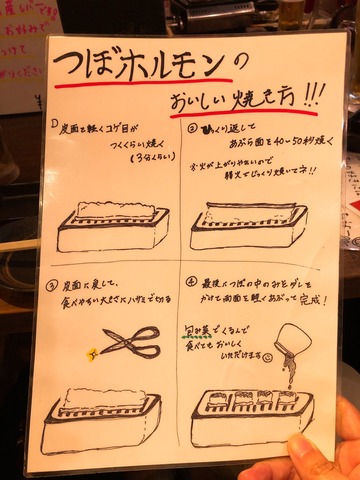 つぼホルモンの
おいしい焼き方!!!
① 皮面を軽くコゲ目が
つくくらい焼く
(3分くらい)
② ひっくり返して
あぶら面を40〜50秒焼く
※火が上がりやすいので
弱火でじっくり焼いてネ!!
③ 皮面に戻して、
食べやすい大きさにハサミで切る
④ 最後につぼの中のみそダレを
かけて両面を軽くあぶって完成!
包み菜でくるんで
食べても おいしく
いただけます